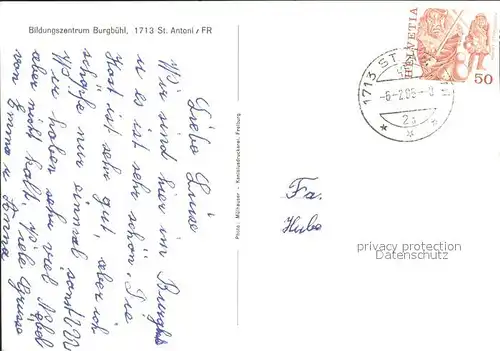 Bildungszentrum Burgbühl, 1713 St. Antoni / FR
Liebe Luise
Wir sind hier im Burgbühl
u es ist sehr schön. Die
Kost ist sehr gut, aber ich
schlafe nur einmal sonst
Wir haben sehr viel Nebel
aber nicht kalt, Viele Grüsse
von Emma u Anna
Photo: Mülhauser - Kanisiusdruckerei, Freiburg
HELVETIA
50
1713 ST.
-6-2.08-8
2a
Fa.
Hube
privacy protection
Datenschutz